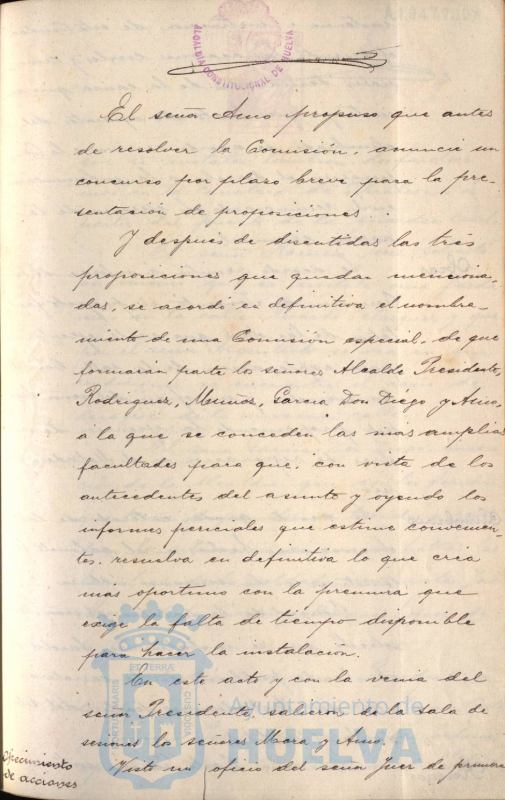 ALCALDIA CONSTITUCIONAL DE HUELVA
El señor Amo propuso que antes
de resolver la Comisión, anuncie un
concurso por plazo breve para la pre-
sentación de proposiciones.
Y después de discutidas las tres
proposiciones que quedan menciona-
das, se acordó en definitiva el nombra-
miento de una Comisión especial, de que
formarán parte los señores Alcalde Presidente,
Rodriguez, Muñoz, Garcia Don Diego y Amo,
á la que se conceden las más amplias
facultades para que, con vista de los
antecedentes del asunto y oyendo los
informes periciales que estime convenien-
tes, resuelva en definitiva lo que crea
más oportuno con la premura que
exige la falta de tiempo disponible
para hacer la instalación.
En este acto y con la venia del
señor Presidente, salieron de la sala de
sesiones los señores Mora y Amo.
Ofrecimiento
de acciones
Visto un oficio del señor Juez de primera
PORTUS MARIS ET TERRÆ CUSTODIA
Ayuntamiento de
HUELVA